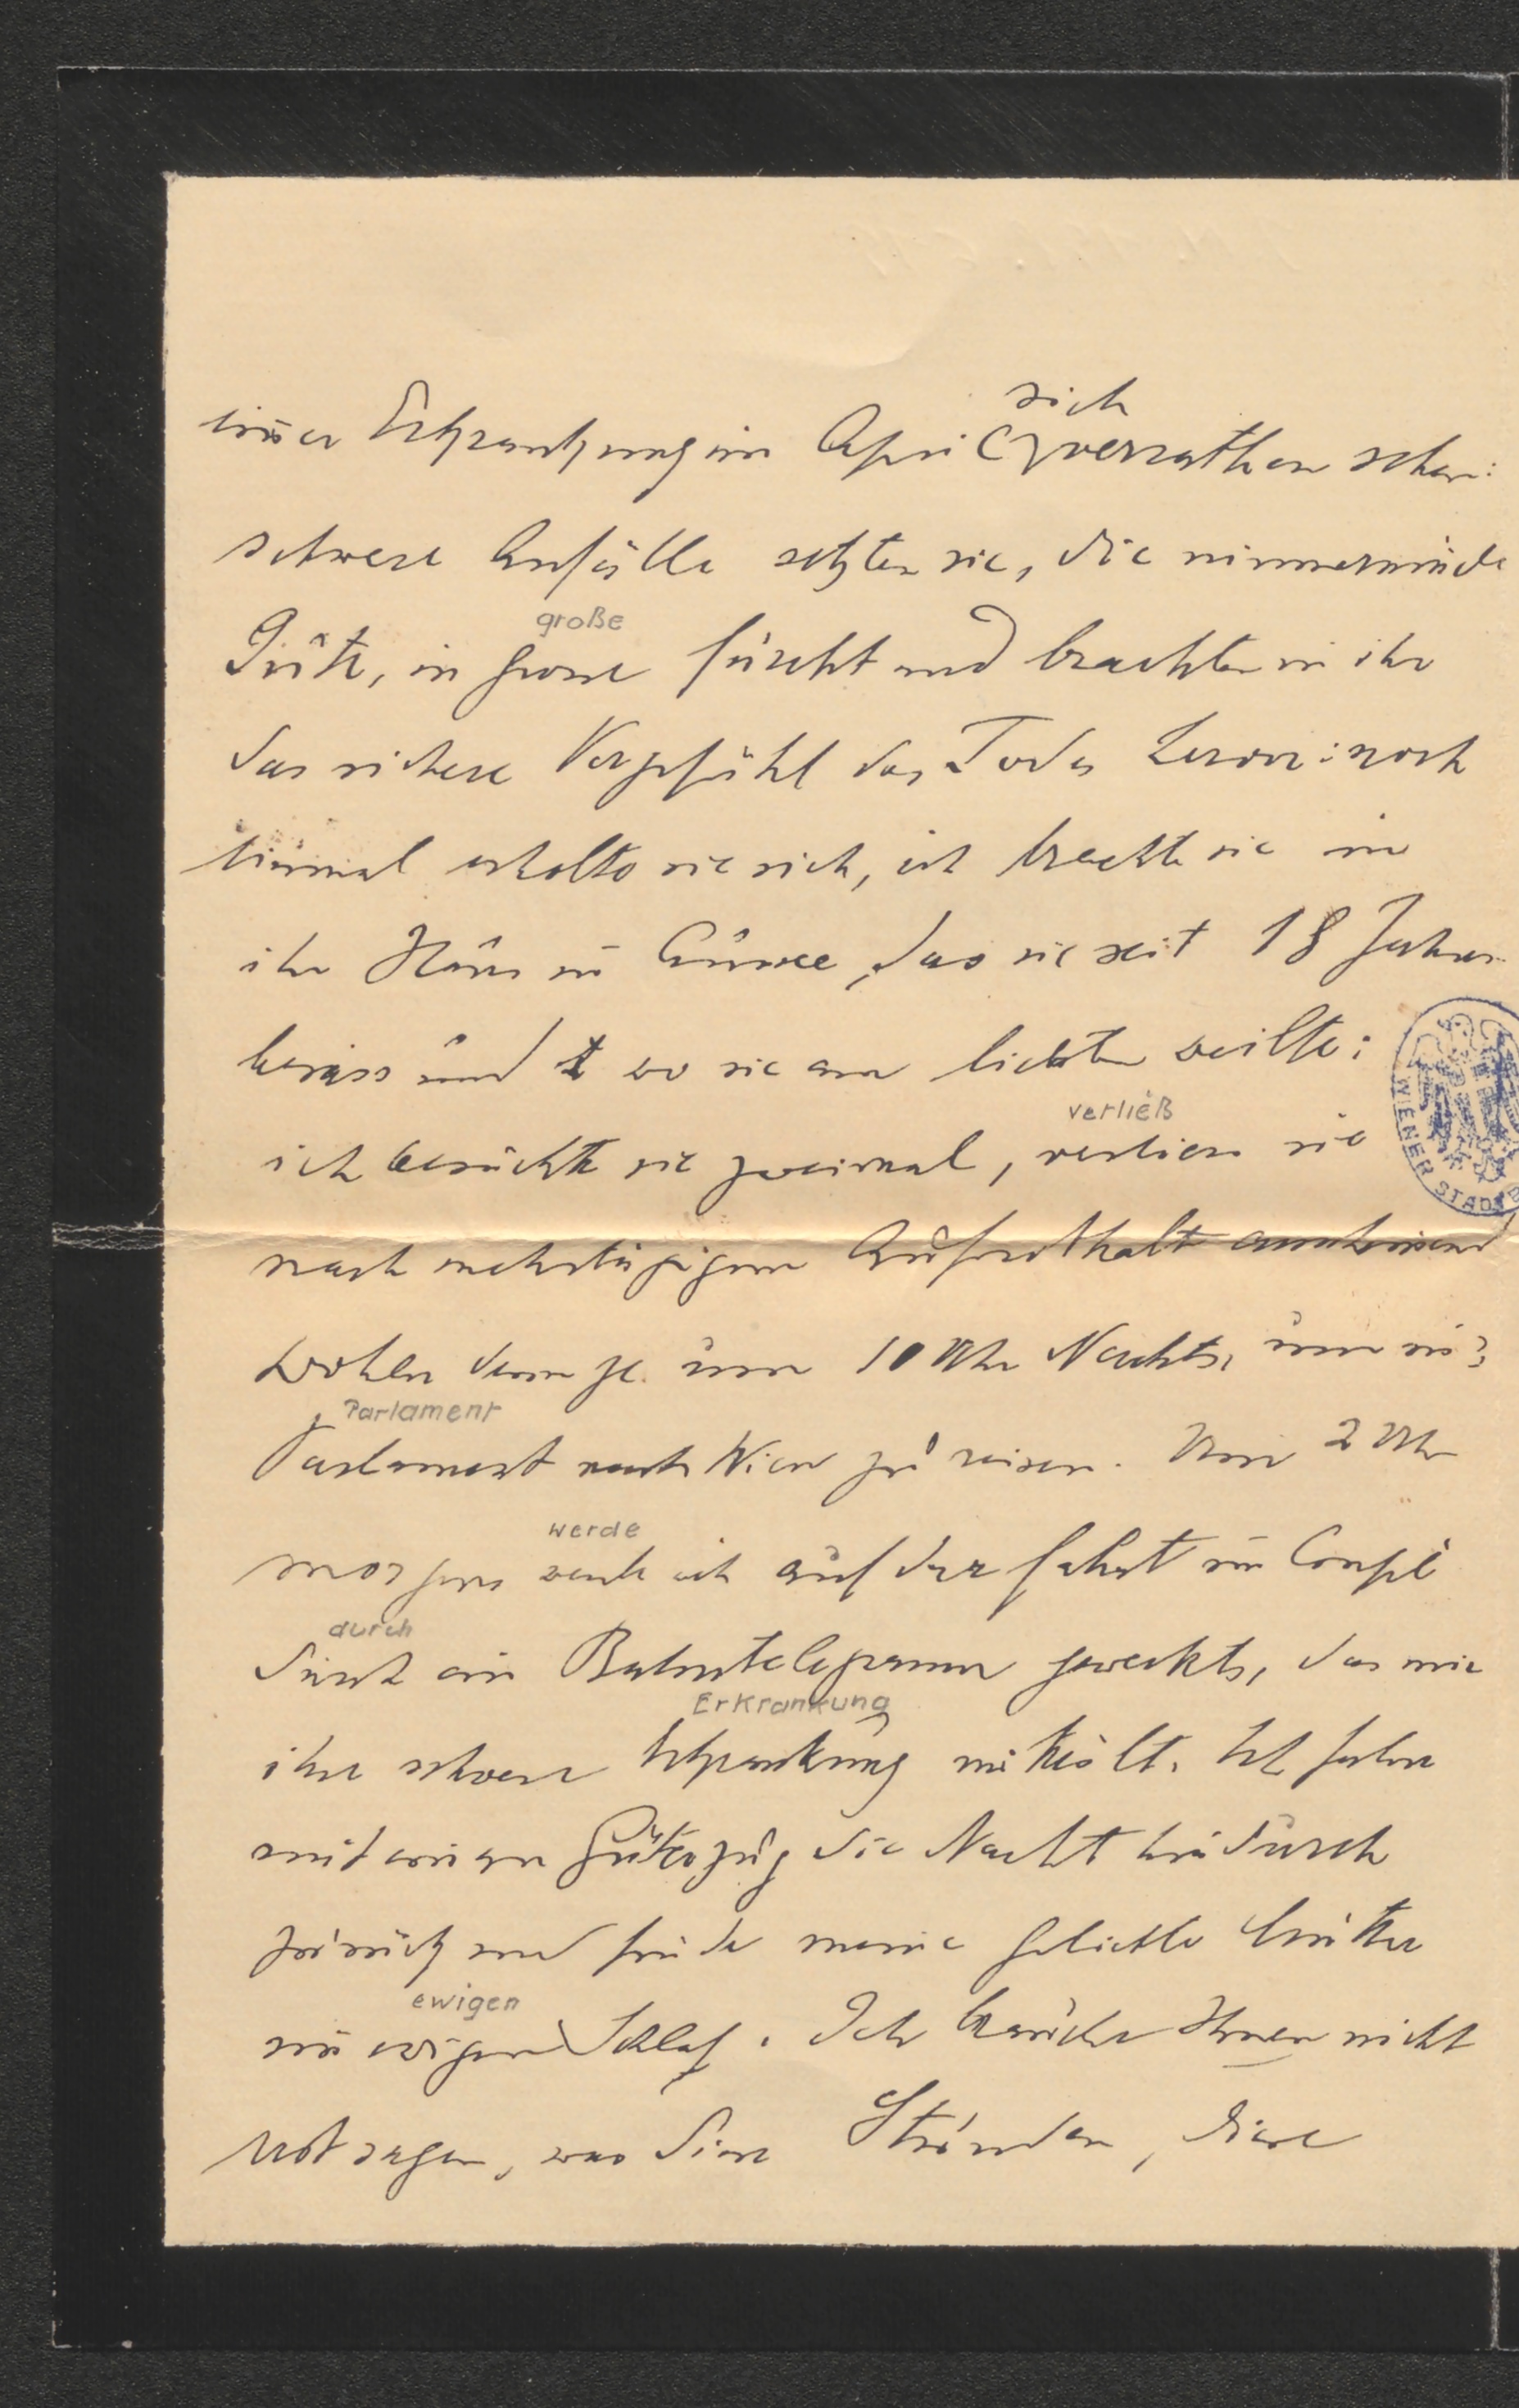 sich
einer Erkrankung im April verrathen schon:
schwere Anfälle setzten sie, die nimmermüde
große
Güte, in grosse Furcht und brachten in ihr
das sichere Vorgefühl des Todes hervor: noch
einmal erholte sie sich, ich brachte sie in
ihr Haus in Aussee, das sie seit 18 Jahren
besass und wo sie am liebsten weilte:
verließ
ich besuchte sie zweimal, verliess sie
nach mehrtägigem Aufenthalt anscheinend
wohler denn je um 10 Uhr Nachts, um ins
Parlament
Parlament nach Wien zu reisen. Um 2 Uhr
werde
morgens werde ich auf der Fahrt im Coupé
durch
durch ein Bahntelegramm geweckt, das mir
Erkrankung
ihre schwere Erkrankung mittheilt. Ich fahre
mit einem Güterzug die Nacht hindurch
zurück und finde meine geliebte Mutter
ewigen
im ewigen Schlaf. Ich brauche Ihnen nicht
erst sagen, was diese Stunden, diese
WIENER STADTB